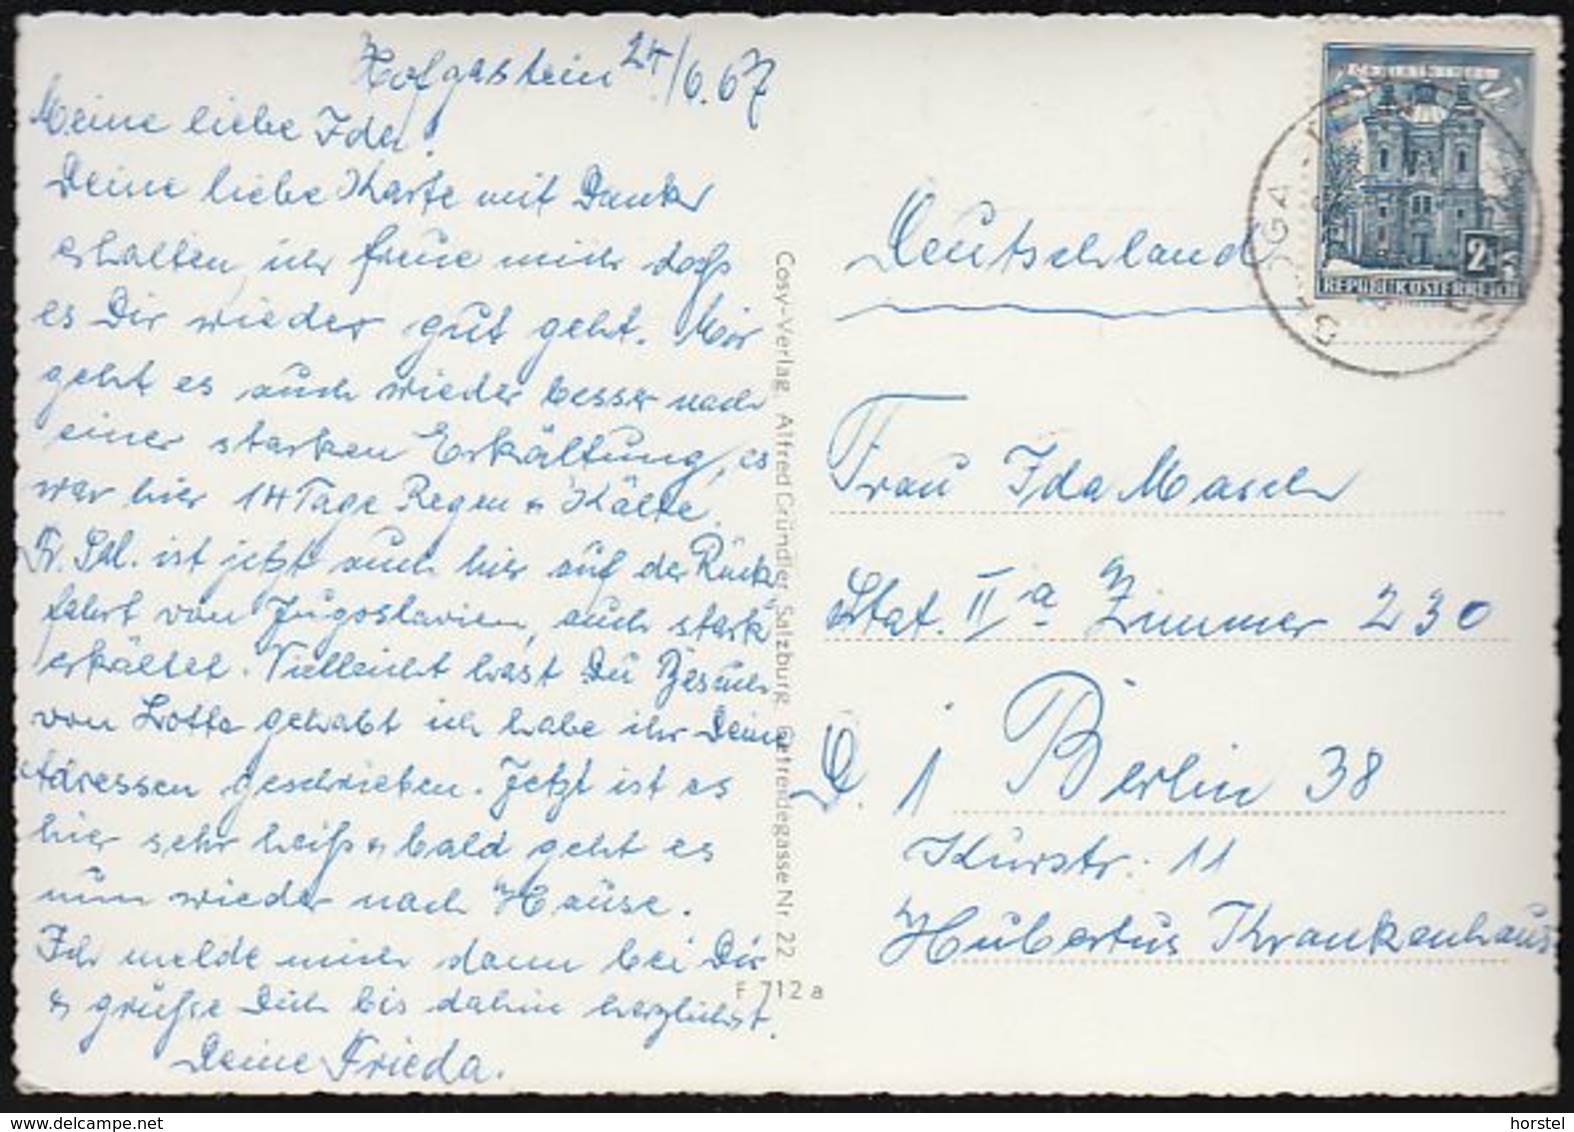 Hofgastein 24/6.67
Meine liebe Ida!
Deine liebe Karte mit Dank
erhalten, ich freue mich dass
es Dir wieder gut geht. Mir
geht es auch wieder besser nach
einer starken Erkältung, es
war hier 14 Tage Regen & Kälte.
Fr. ist jetzt auch hier auf der Rück
fahrt von Jugoslavien, auch stark
erkältet. Vielleicht hast Du Besuch
von Lotte gehabt ich habe ihr Deine
Adressen geschrieben. Jetzt ist es
hier sehr heiß & bald geht es
nun wieder nach Hause.
Ich melde mich dann bei Dir
& grüße Dich bis dahin herzlichst.
Deine Frieda.
Cosy-Verlag Alfred Gründler, Salzburg, Getreidegasse Nr. 22
F 712 a
2.40
REPUBLIK ÖSTERREICH
Deutschland
Frau Ida Masch
Stat. II a Zimmer 230
D. 1 Berlin 38
Kurstr. 11
Hubertus Krankenhaus
horstel